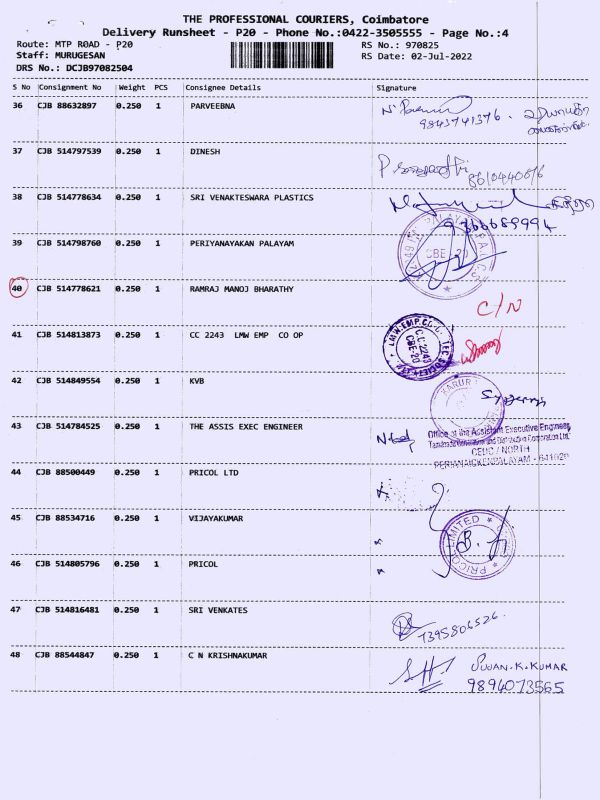 THE PROFESSIONAL COURIERS, Coimbatore
Delivery Runsheet - P20 - Phone No.:0422-3505555 - Page No.:4
Route: MTP R0AD - P20 RS No.: 970825
Staff: MURUGESAN RS Date: 02-Jul-2022
DRS No.: DCJB97082504
S No Consignment No Weight PCS Consignee Details Signature
36 CJB 88632897 0.250 1 PARVEEBNA
9843741376.
37 CJB 514797539 0.250 1 DINESH
38 CJB 514778634 0.250 1 SRI VENAKTESWARA PLASTICS
39 CJB 514798760 0.250 1 PERIYANAYAKAN PALAYAM
CBE-20
40 CJB 514778621 0.250 1 RAMRAJ MANOJ BHARATHY
C/N
41 CJB 514813873 0.250 1 CC 2243 LMW EMP CO OP
C.C.2243
CBE-20
42 CJB 514849554 0.250 1 KVB
KARUR
43 CJB 514784525 0.250 1 THE ASSIS EXEC ENGINEER
Office of the Assistant Executive Engineer,
CEDC / NORTH
PERIYANAICKENPALAYAM - 641020
44 CJB 88500449 0.250 1 PRICOL LTD
45 CJB 88534716 0.250 1 VIJAYAKUMAR
PRICOL LIMITED
46 CJB 514805796 0.250 1 PRICOL
47 CJB 514816481 0.250 1 SRI VENKATES
7395806526.
48 CJB 88544847 0.250 1 C N KRISHNAKUMAR
K. KUMAR
9894073565